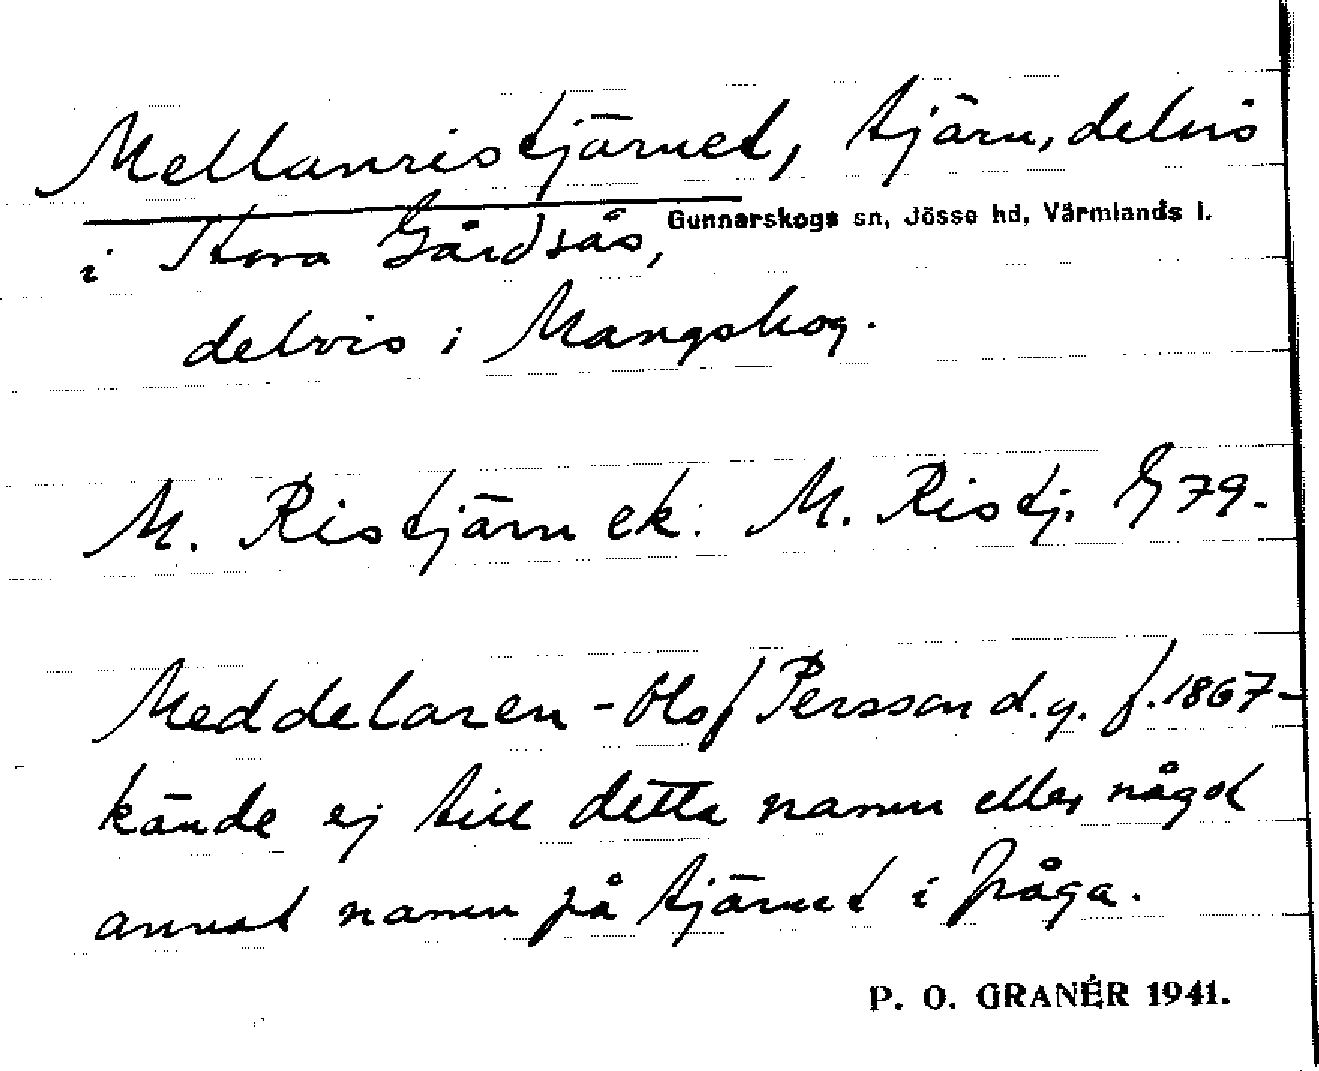 Mellanristjärnet, tjärn, delvis
Gunnarskogs sn, Jösse hd, Värmlands l.
i Stora Gårdsås,
delvis i Mangskog.
M. Ristjärn ek. M. Ristj. G 79.
Meddelaren - Olof Persson d.y. f. 1867 -
kände ej till detta namn eller något
annat namn på tjärnet i fråga.
P. O. GRANÉR 1941.